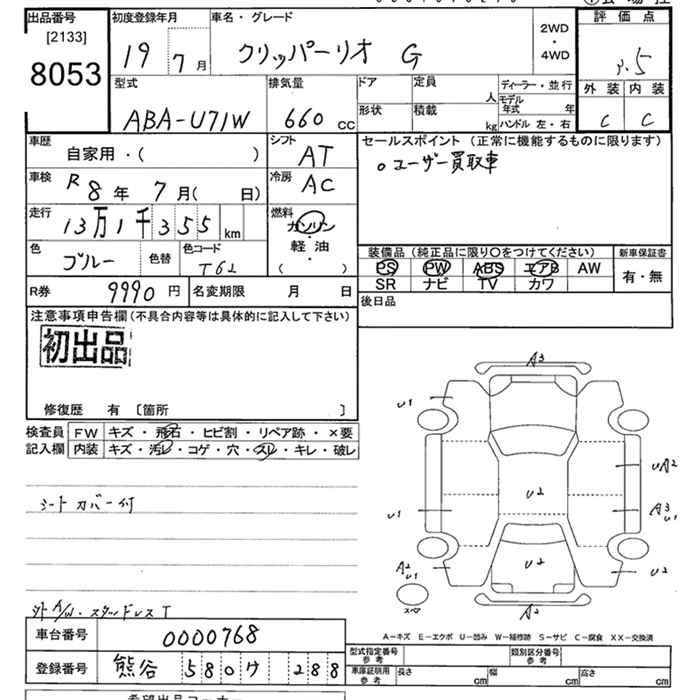 出品番号
[2133]
8053
初度登録年月
19 7月
車名・グレード
クリッパーリオ G
2WD
・
4WD
評価点
3.5
外装 内装
C C
型式
ABA-U71W
排気量
660 cc
ドア
形状
定員
人
積載
kg
ディーラー・並行
モデル年式 年
ハンドル 左・右
車歴
自家用・( )
シフト
AT
車検
R8年 7月( 日)
冷房
AC
走行
13万1千355 km
燃料
ガソリン
・
軽油
・
( )
色
ブルー
色替
色コード
T62
セールスポイント(正常に機能するものに限ります)
○ユーザー買取車
装備品(純正品に限り○をつけてください)
新車保証書
PS PW ABS エアB AW
SR ナビ TV カワ
有・無
後日品
R券 9990円
名変期限 月 日
注意事項申告欄(不具合内容等は具体的に記入して下さい)
初出品
修復歴 有 〔箇所 〕
検査員記入欄
FW キズ・飛石・ヒビ割・リペア跡・×要
内装 キズ・汚レ・コゲ・穴・スレ・キレ・破レ
シートカバー付
外A/W・スタッドレスT
A3
U1
UA2
U2
A3
U1
U1
A2
U1
U2
U2
A2
スペア
A−キズ E−エクボ U−凹み W−補修跡 S−サビ C−腐食 XX−交換済
車台番号 0000768
登録番号 熊谷 580 ワ 288
型式指定番号 参考
類別区分番号 参考
車庫証明用 参考
長さ cm 幅 cm 高さ cm